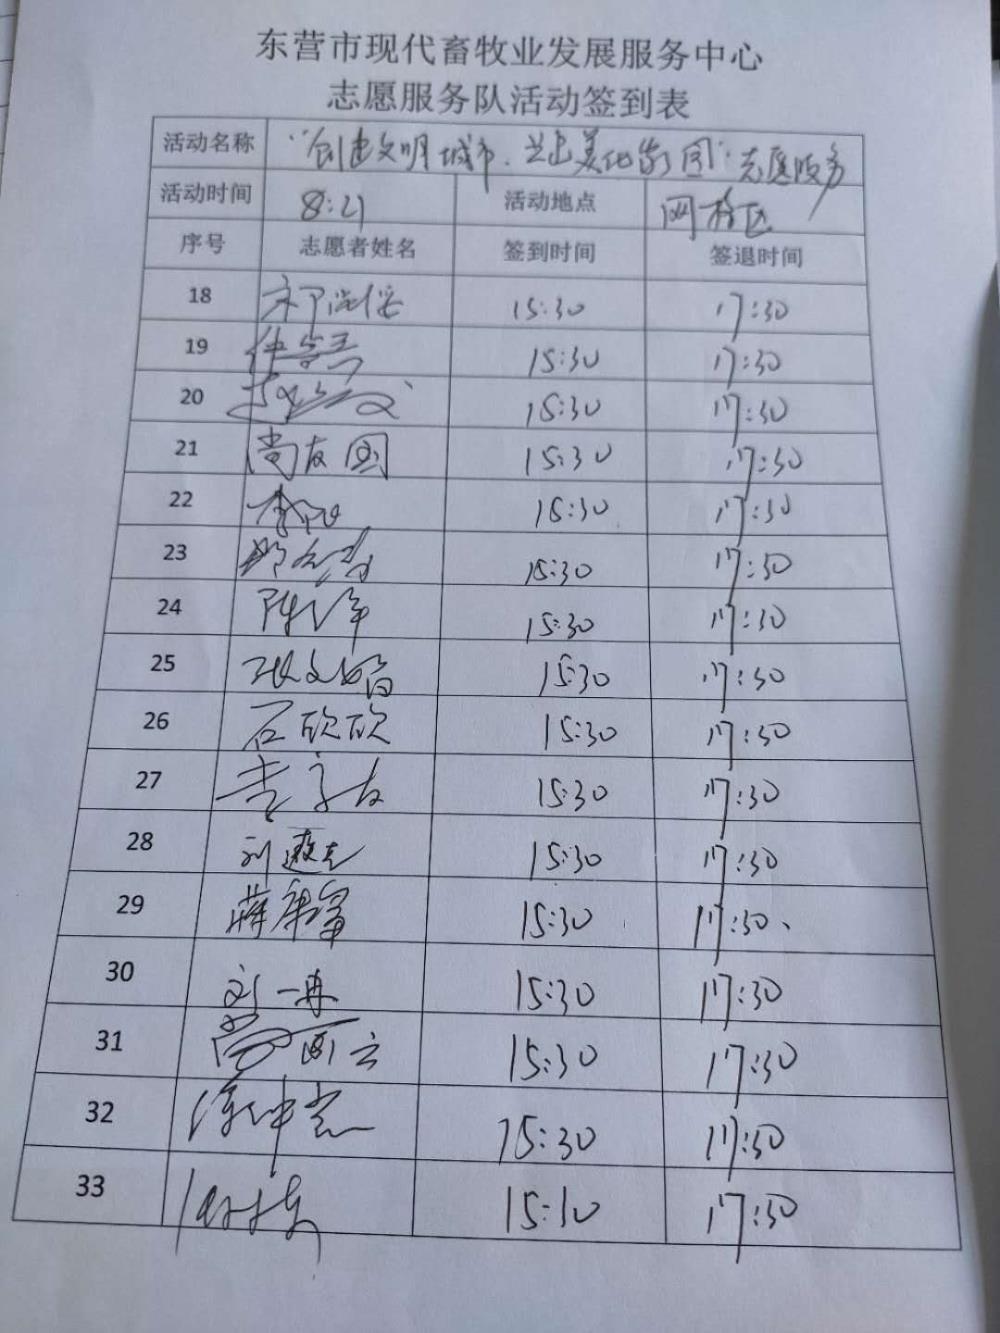 东营市现代畜牧业发展服务中心
志愿服务队活动签到表
活动名称 "创建文明城市、共建美好家园"志愿服务
活动时间 8:21 活动地点 网格区
序号 志愿者姓名 签到时间 签退时间
18 15:30 17:30
19 15:30 17:30
20 15:30 17:30
21 尚友国 15:30 17:30
22 15:30 17:30
23 15:30 17:30
24 15:30 17:30
25 张文娟 15:30 17:30
26 石欣欣 15:30 17:30
27 15:30 17:30
28 15:30 17:30
29 15:30 17:30
30 刘一冉 15:30 17:30
31 15:30 17:30
32 15:30 17:30
33 15:30 17:30